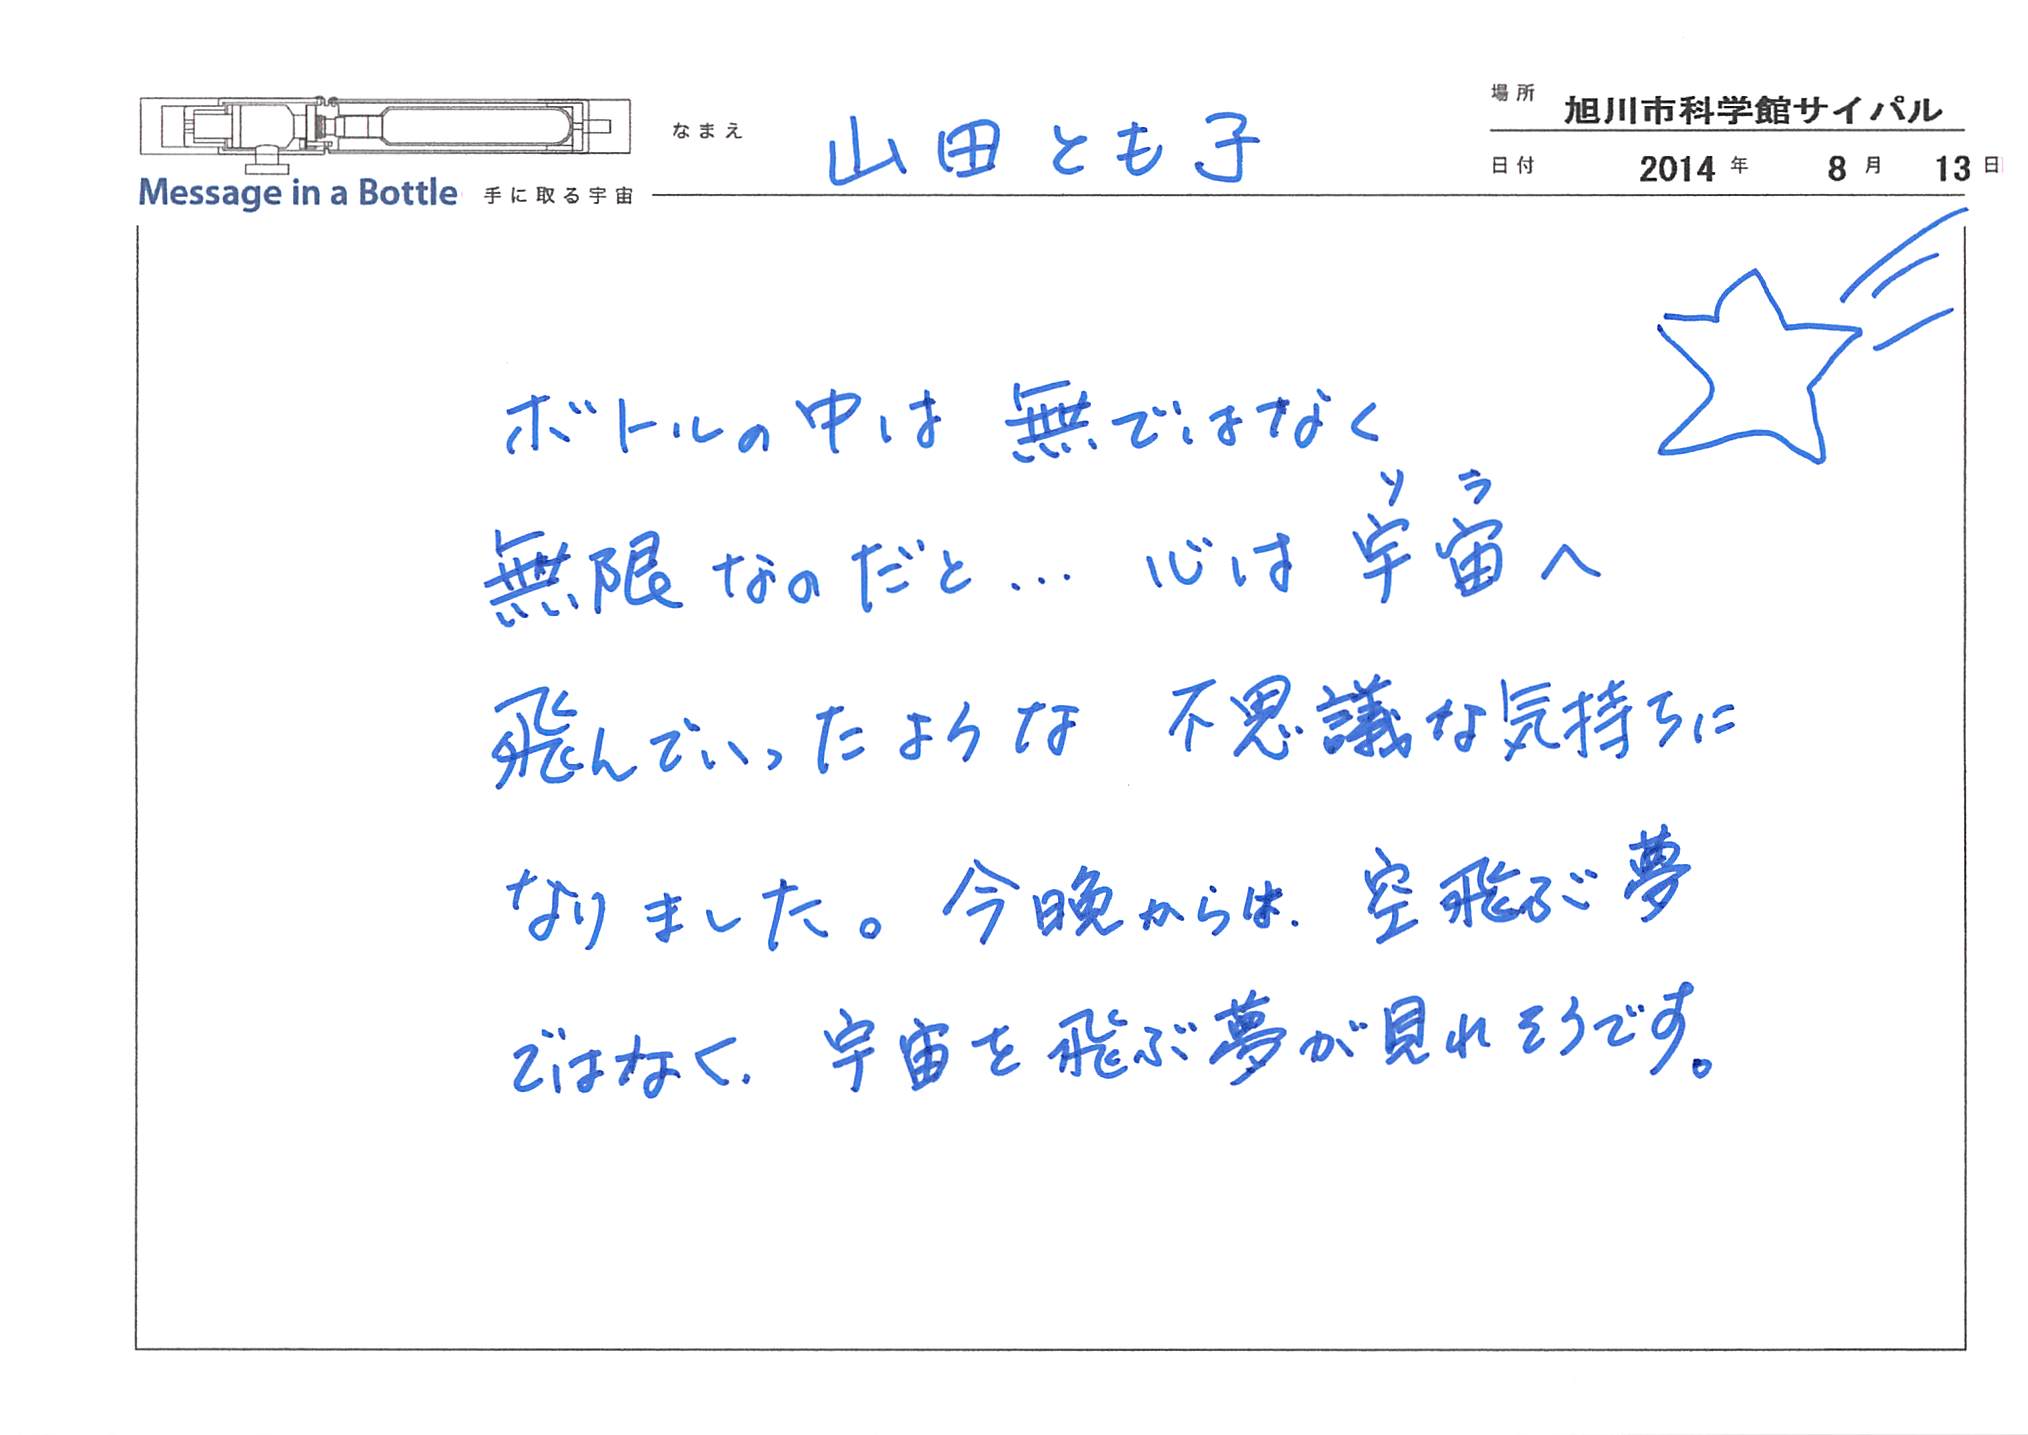 場所 旭川市科学館サイパル
なまえ 山田とも子
日付 2014年 8月 13日
Message in a Bottle 手に取る宇宙
ボトルの中は 無ではなく
ソラ
無限なのだと… 心は宇宙へ
飛んでいったような 不思議な気持ちに
なりました。今晩からは、空飛ぶ夢
ではなく、宇宙を飛ぶ夢が見れそうです。